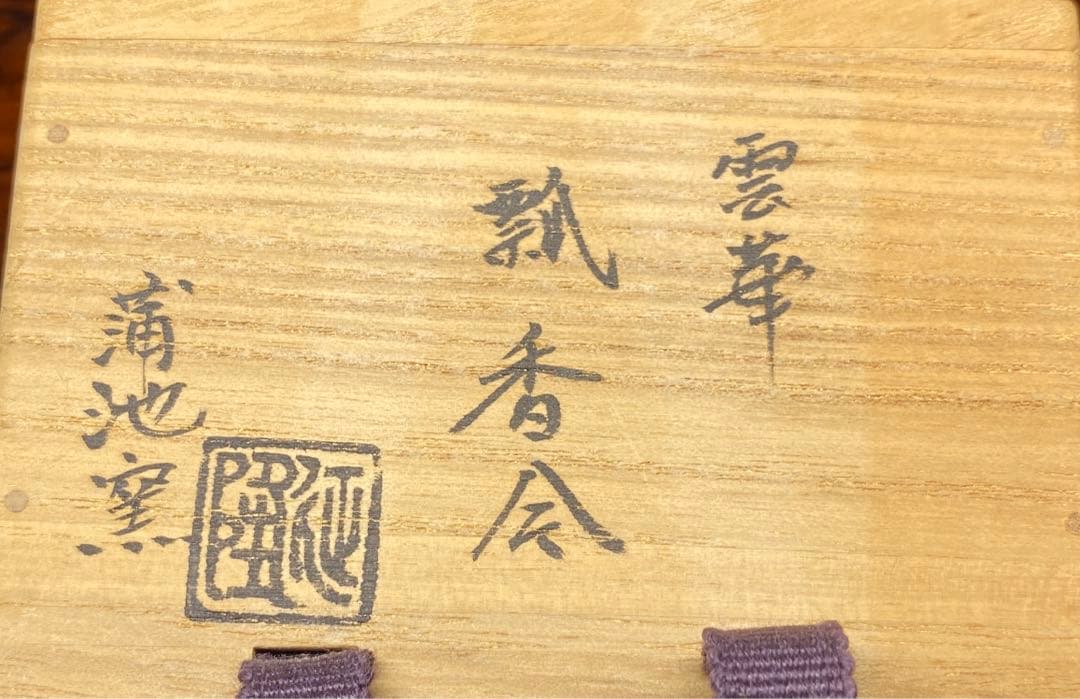 雲華
瓢香合
蒲池窯